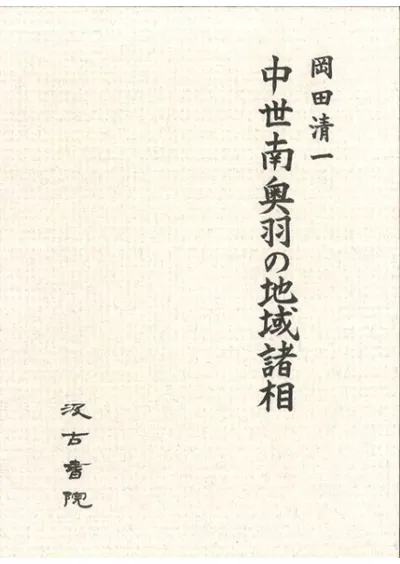 岡田清一
中世南奥羽の地域諸相
汲古書院